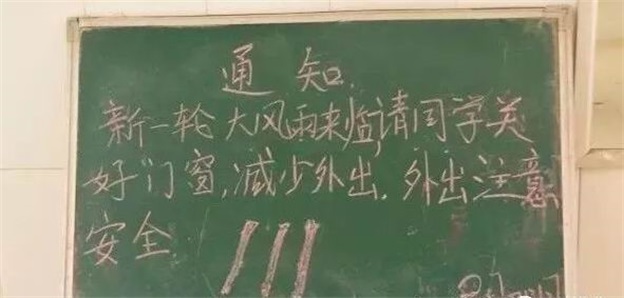 通知
新一轮大风雨来临,请同学关
好门窗,减少外出.外出注意
安全!!!